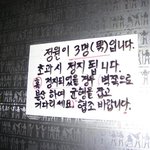 정원이 3명(男)입니다.
초과시 정지 됩니다.
혹 정지되었을 경우 벽쪽으로
붙어 하여 균형을 잡고
기다리세요. 협조 바랍니다.